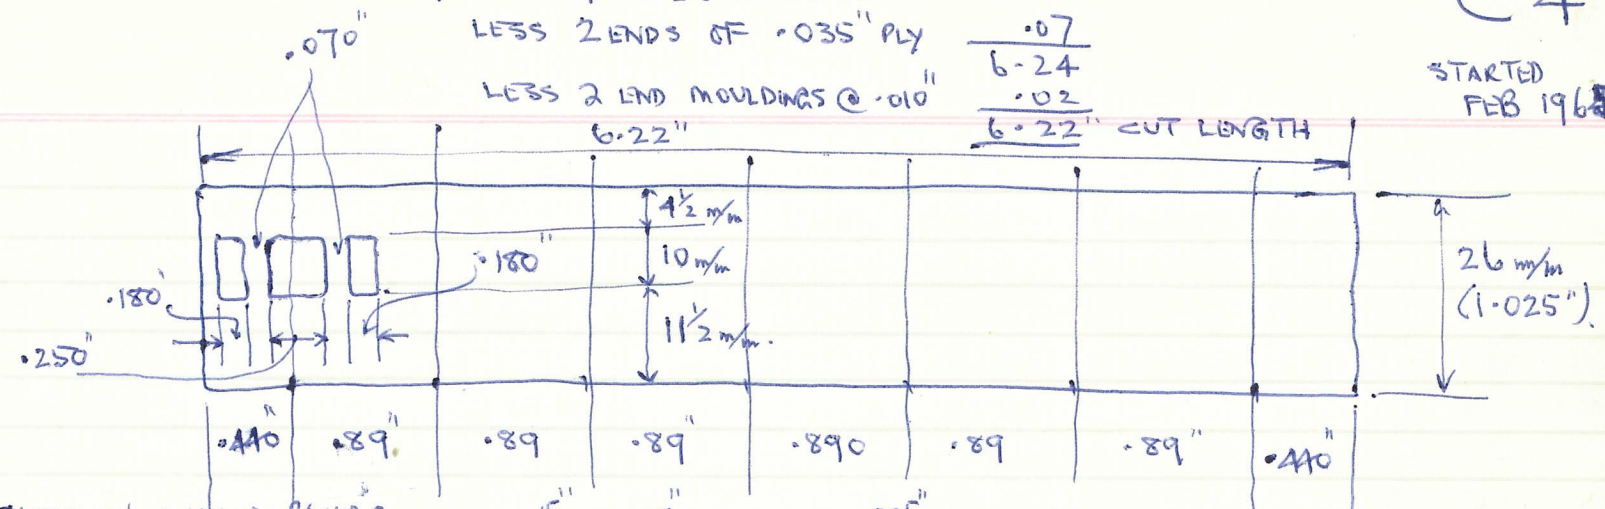 .070"
LESS 2 ENDS OF .035" PLY .07
6.24
LESS 2 END MOULDINGS @ .010" .02
6.22" CUT LENGTH
STARTED
FEB 196
6.22"
4½ m/m
10 m/m
11½ m/m.
.180"
.180"
.250"
26 m/m
(1.025").
.440" .89" .89 .89" .890 .89 .89" .440"